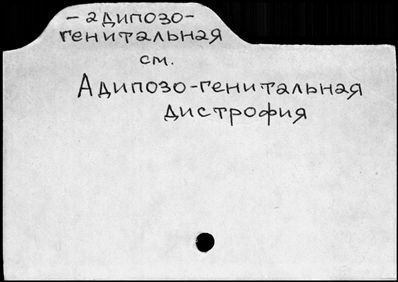 - адипозо-
генитальная
см.
Адипозо-генитальная
дистрофия